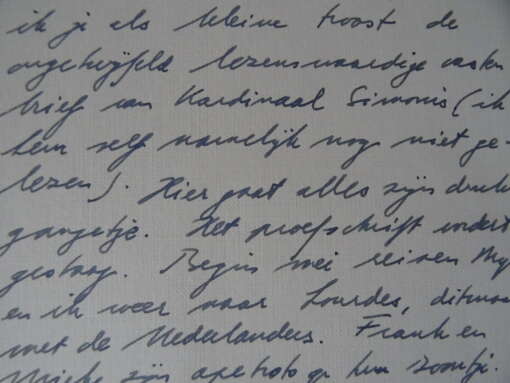 ik je als kleine troost de
ongetwijfeld lezenswaardige vasten
brief van Kardinaal Simonis (ik
hem zelf namelijk nog niet ge-
lezen). Hier gaat alles zijn druk
gangetje. Het proefschrift vordert
gestaag. Begin mei reizen
en ik weer naar Lourdes, ditmaa
met de Nederlanders. Frank en
zijn apetrots op hun zoontje.